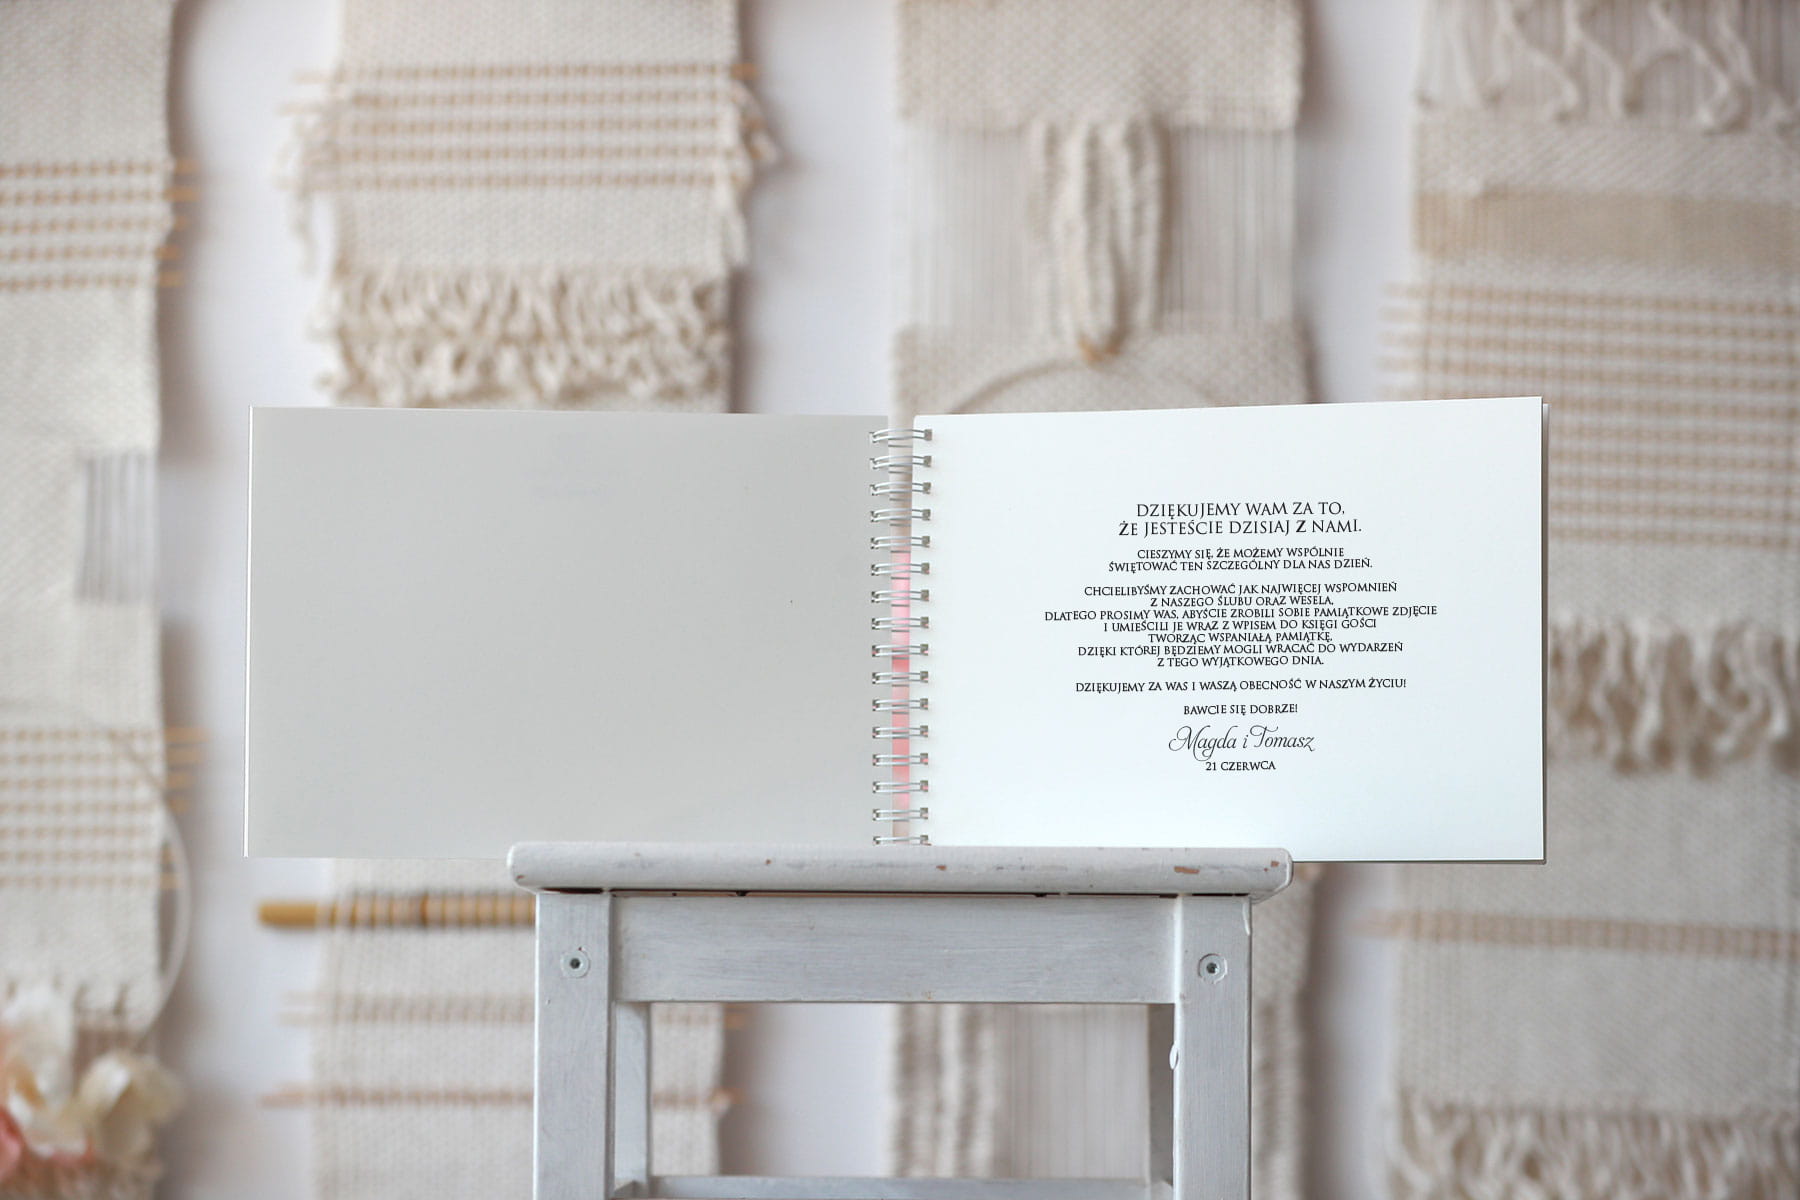 DZIĘKUJEMY WAM ZA TO,
ŻE JESTEŚCIE DZISIAJ Z NAMI.
CIESZYMY SIĘ, ŻE MOŻEMY WSPÓLNIE
ŚWIĘTOWAĆ TEN SZCZEGÓLNY DLA NAS DZIEŃ.
CHCIELIBYŚMY ZACHOWAĆ JAK NAJWIĘCEJ WSPOMNIEŃ
Z NASZEGO ŚLUBU ORAZ WESELA,
DLATEGO PROSIMY WAS, ABYŚCIE ZROBILI SOBIE PAMIĄTKOWE ZDJĘCIE
I UMIEŚCILI JE WRAZ Z WPISEM DO KSIĘGI GOŚCI
TWORZĄC WSPANIAŁĄ PAMIĄTKĘ,
DZIĘKI KTÓREJ BĘDZIEMY MOGLI WRACAĆ DO WYDARZEŃ
Z TEGO WYJĄTKOWEGO DNIA.
DZIĘKUJEMY ZA WAS I WASZĄ OBECNOŚĆ W NASZYM ŻYCIU!
BAWCIE SIĘ DOBRZE!
Magda i Tomasz
21 CZERWCA